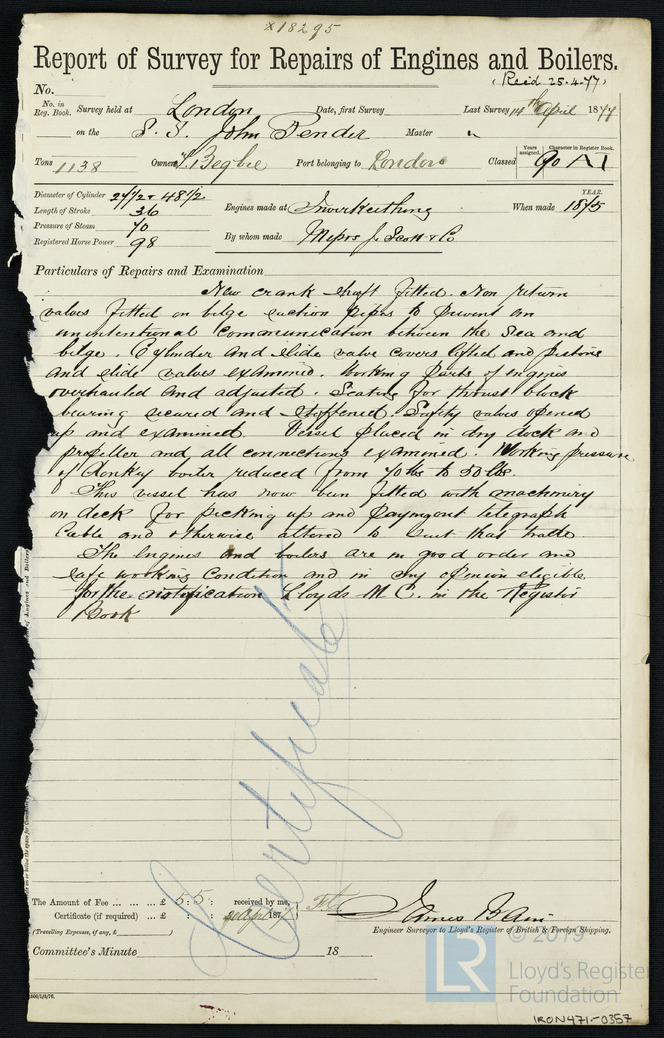 x18295
Report of Survey for Repairs of Engines and Boilers.
(Recd 25.4.77)
No.
No. in Reg. Book. Survey held at London Date, first Survey Last Survey 14th April 1877
on the S.S. John Pender Master "
Tons 1138 Owners Begbie Port belonging to London Classed Years assigned. 90 Character in Register Book. A1
Diameter of Cylinder 27½ + 48½
Length of Stroke 36
Pressure of Steam 70
Registered Horse Power 98
Engines made at Inverkeithing
By whom made Messrs J. Scott & Co
YEAR.
When made 1875
Particulars of Repairs and Examination
New crank shaft fitted. Non return
valves fitted on bilge suction pipes to prevent an
unintentional communication between the sea and
bilge. Cylinder and slide valve covers lifted and pistons
and slide valves examined. Working parts of engines
overhauled and adjusted. Seating for thrust block
bearing secured and stiffened. Safety valves opened
up and examined. Vessel placed in dry dock and
propeller and all connections examined. Working pressure
of donkey boiler reduced from 70 lbs to 50 lbs.
This vessel has now been fitted with machinery
on deck for picking up and paying out telegraph
Cable and otherwise altered to suit that trade.
The engines and boilers are in good order and
safe working condition and in my opinion eligible
for the notification Lloyds M C. in the Register
Book
Certificate
The Amount of Fee ... ... ... £ 5 : 5 : received by me,
Certificate (if required) ... £ : : April 187
(Travelling Expenses, if any, £ )
James Bain
Engineer Surveyor to Lloyd's Register of British & Foreign Shipping.
Committee's Minute 18
LR
© 2019
Lloyd's Register
Foundation
IRON471-0357